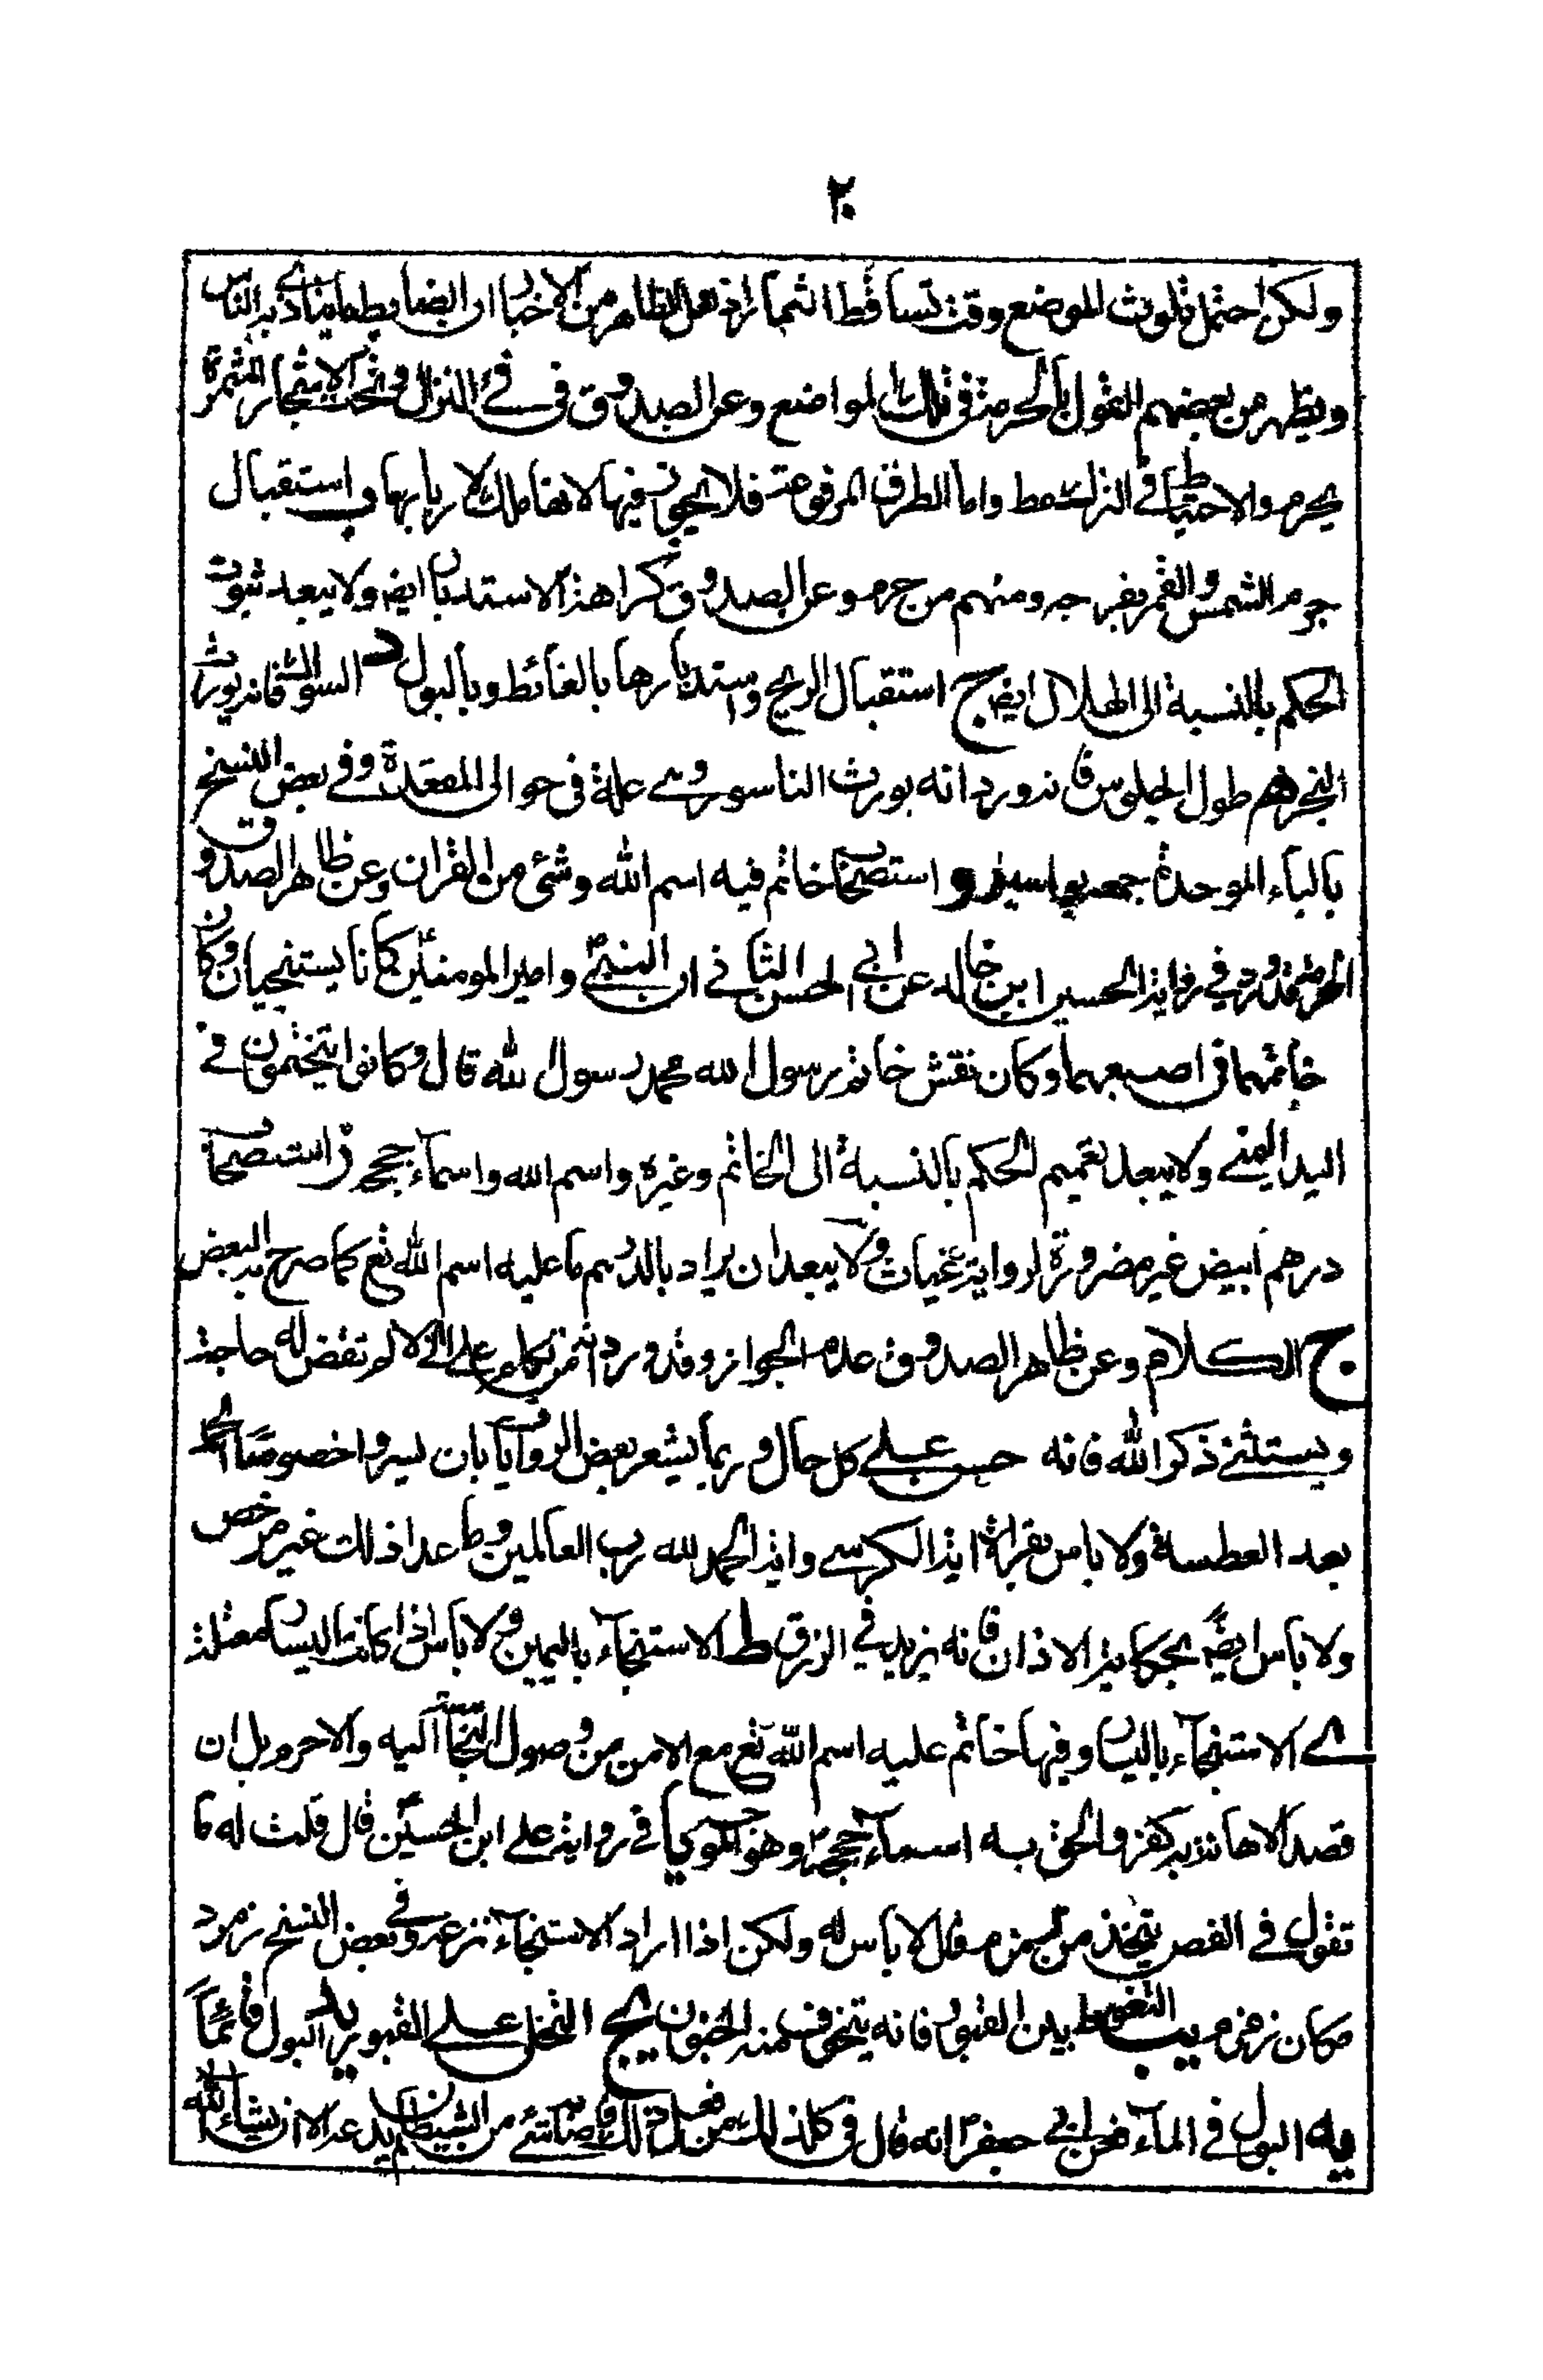 ٢٠
ولكن احتمل تلوث الموضع وقت تساقط اثمارا زهل الظاهر من الاخبار ان الضابط ما يتاذى به الناس
ويظهر من بعضهم القول بالحرمة في تلك المواضع وعن الصدوق في فئ النزال وتحت الاشجار المثمرة
يحرم والاحتياط في الترك مط واما الطرق المرفوعة فلا يجوز فيها لانها ملك لاربابها و استقبال
جرم الشمس والقمر بفرجه ومنهم من حرم وعن الصدوق كراهة الاستدبار ايض ولا يبعد ثبوت
الحكم بالنسبة الى الهلال ايض ج استقبال الريح واستدبارها بالغائط وبالبول د السواك فانه يورث
البخر هـ طول الجلوس فانه ورد انه يورث الناسور وهي علة في حوالى المقعدة وفي بعض النسخ
بالباء الموحدة جمعه بواسير و استصحاب خاتم فيه اسم الله وشئ من القران وعن ظاهر الصدوق
الحرمة وقد ورد في رواية الحسين ابن خالد عن ابي الحسن الثاني ان النبي ص وامير المومنين ع كانا يستنجيان وكان
خاتمهما في اصبعهما وكان نقش خاتم رسول الله محمد رسول لله قال وكانوا يتختمون في
اليد اليمنى ولا يبعد تعميم الحكم بالنسبة الى الخاتم وغيره واسم الله واسماء حججه ز استصحاب
درهم ابيض غير مضرورة لرواية غياث ولا يبعد ان يراد بالدرهم ما عليه اسم الله تع كما صرح به البعض
ح الكلام وعن ظاهر الصدوق عدم الجواز وقد ورد انه من تكلم على الخلا لم تقض له حاجة
ويستثنى ذكر الله فانه حسن على كل حال وربما يشعر بعض الروايات بان يسروا خصوصا الحمد
بعد العطسة ولا باس بقراءة اية الكرسي واية الحمد لله رب العالمين وما عدا ذلك غير مرخص
ولا باس ايض بحكاية الاذان فانه يزيد في الرزق ط الاستنجاء باليمين ولا باس اذا كانت اليسار معتلة
ي الاستنجاء باليسار وفيها خاتم عليه اسم الله تع مع الامن من وصول النجاسة اليه والا حرم بل ان
قصد الاهانة به كفر والحق به اسماء حججه وهو المروي في رواية علي ابن الحسين قال قلت له ما
تقول في الفص يتخذ من زمزم قال لا باس له ولكن اذا اراد الاستنجاء نزعه وفي بعض النسخ زمرد
مكان زمزم يب التغوط بين القبور فانه يتخوف منه الجنون يج التخلي على القبور يد البول قائماً
يه البول في الماء فعن ابي جعفر انه قال في كل ذلك من فعل ذلك فاصابه شئ من الشيطان لم يدعه الا ان يشاء الله